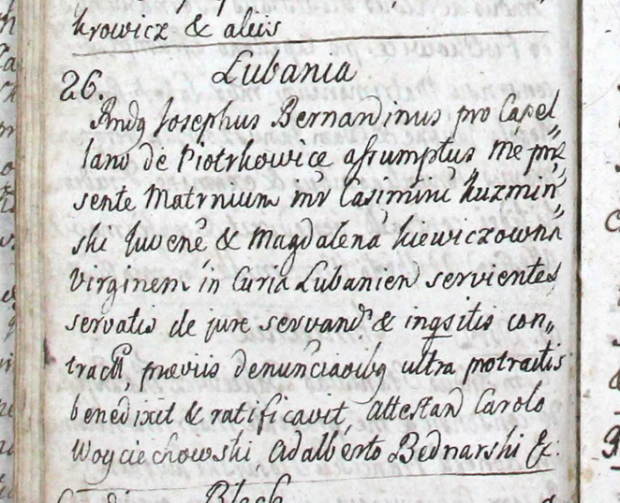 krowicz & aliis
26. Lubania
Rndg Josephus Bernardinus pro Capel„
lano de Piotrkowice assumptus me præ
sente Matrnium inr Casimirū Kuzmiń„
ski Iuvenē & Magdalenā Kiewiczownā
Virginem in Curia Lubanien servientes
servatis de jure servandis & inqsitis con„
tractū, præviis denunciaoibg ultra protractis
benedixit & ratificavit, Attestan Carolo
Woyciechowski, Adalberto Bednarski &.